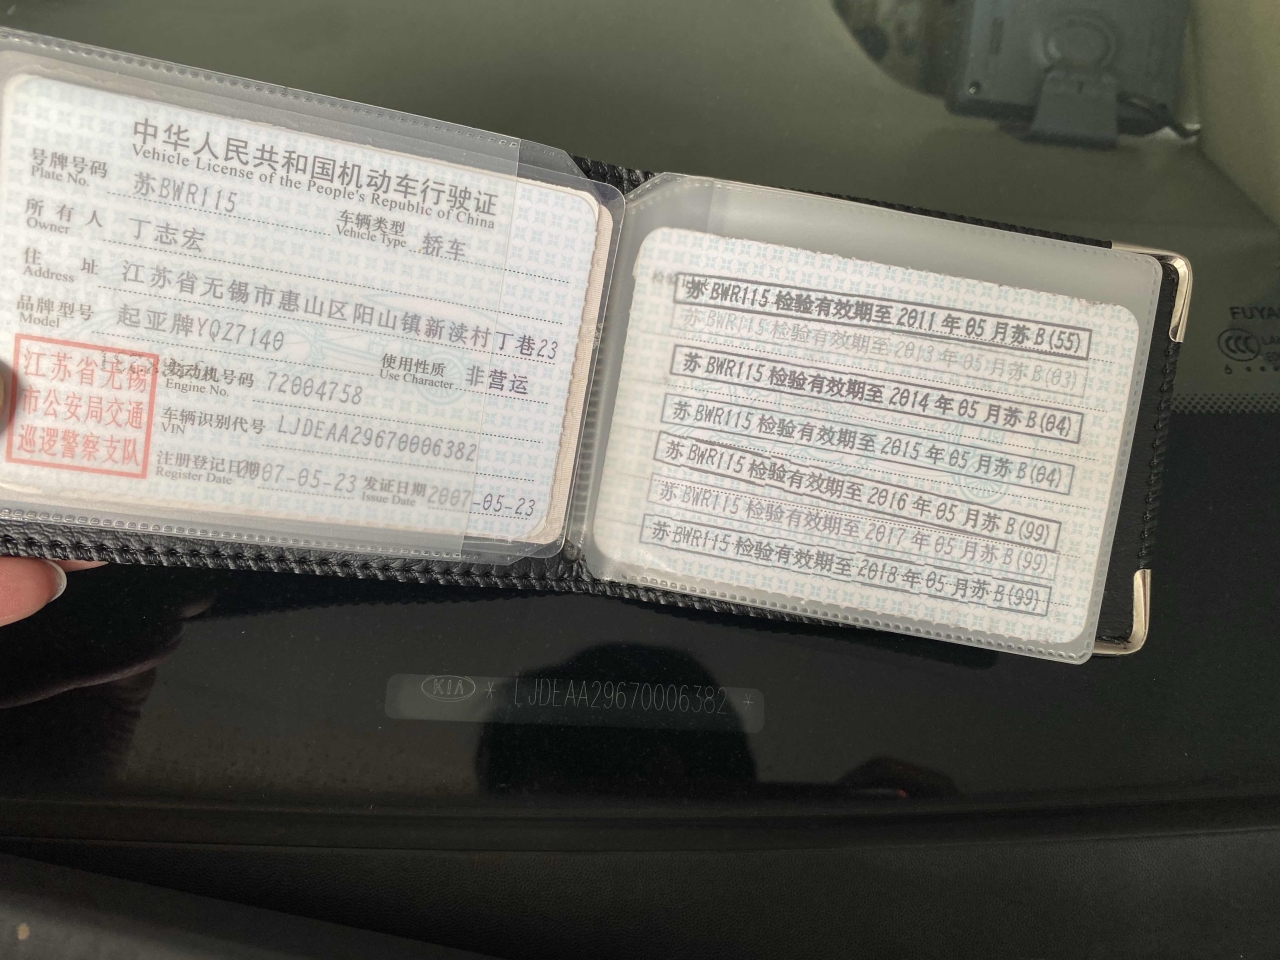 中华人民共和国机动车行驶证
Vehicle License of the People's Republic of China
号牌号码 苏BWR115 车辆类型 轿车
Plate No. Vehicle Type
所有人 丁志宏
Owner
住址 江苏省无锡市惠山区阳山镇新渎村丁巷23
Address
品牌型号 起亚牌YQZ7140 使用性质 非营运
Model Use Character
发动机号码 72004758
Engine No.
车辆识别代号 LJDEAA29670006382
VIN
注册登记日期 2007-05-23 发证日期 2007-05-23
Register Date Issue Date
江苏省无锡
市公安局交通
巡逻警察支队
苏BWR115 检验有效期至 2011 年 05 月苏 B(55)
苏BWR115 检验有效期至 2013 年 05 月苏 B(03)
苏BWR115 检验有效期至 2014 年 05 月苏 B(04)
苏BWR115 检验有效期至 2015 年 05 月苏 B(04)
苏BWR115 检验有效期至 2016 年 05 月苏 B(99)
苏BWR115 检验有效期至 2017 年 05 月苏 B(99)
苏BWR115 检验有效期至 2018 年 05 月苏 B(99)
KIA * LJDEAA29670006382 *